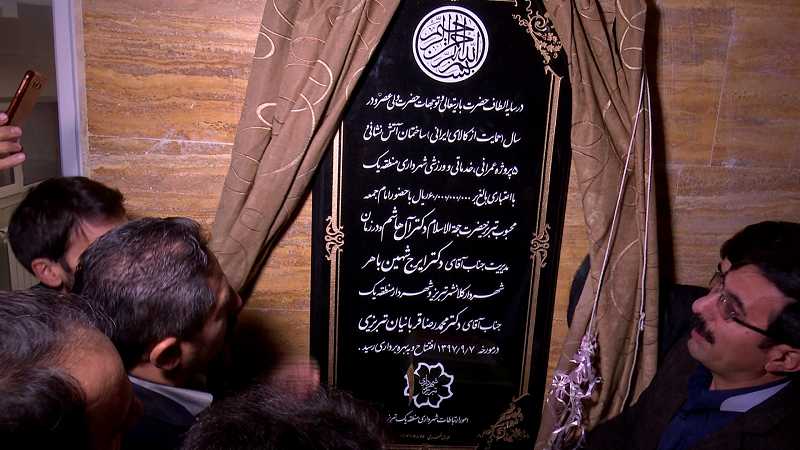 بسم الله الرحمن الرحیم
در سایه الطاف حضرت باریتعالی و توجهات حضرت ولی عصر و در
سال (حمایت از کالای ایرانی) ساختمان آتش نشانی
۵ پروژه عمرانی، خدماتی و ورزشی شهرداری منطقه یک
با اعتباری بالغ بر ۶۰/۰۰۰/۰۰۰/۰۰۰ ریال با حضور امام جمعه
محبوب تبریز حضرت حجة الاسلام دکتر آل هاشم و در زمان
مدیریت جناب آقای دکتر ایرج شهین باهر
شهردار کلانشهر تبریز و شهردار منطقه یک
جناب آقای دکتر محمدرضا قربانیان تبریزی
در مورخه ۱۳۹۷/۹/۷ افتتاح و به بهره برداری رسید.
شهرداری تبریز
امور ارتباطات شهرداری منطقه یک تبریز